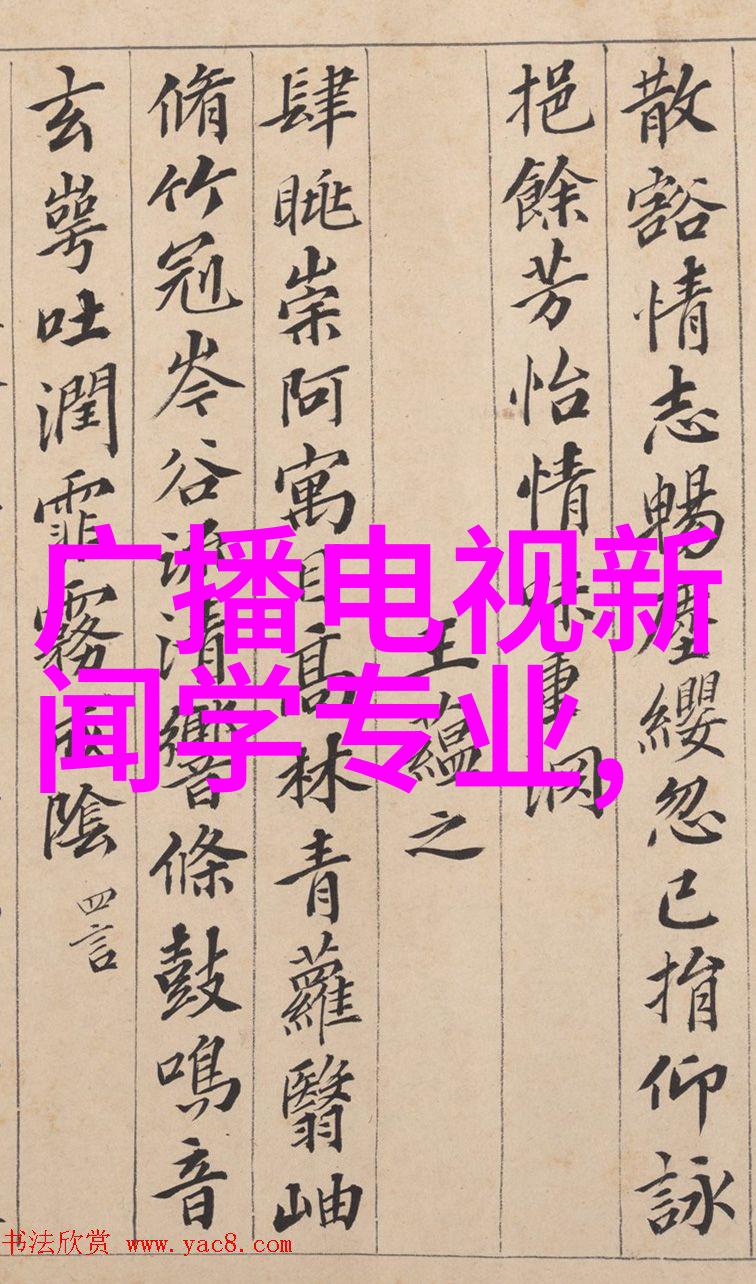 散豁情志暢塵纓忽已捐仰詠
挹餘芳怡情味重淵
王蘊之
肆眺崇阿寓目高林青蘿翳岫
脩竹冠岑谷流清響條鼓鳴音
玄崿吐潤霏霧成陰 四言
广播电视新
闻学专业,
书法欣赏 www.yac8.com